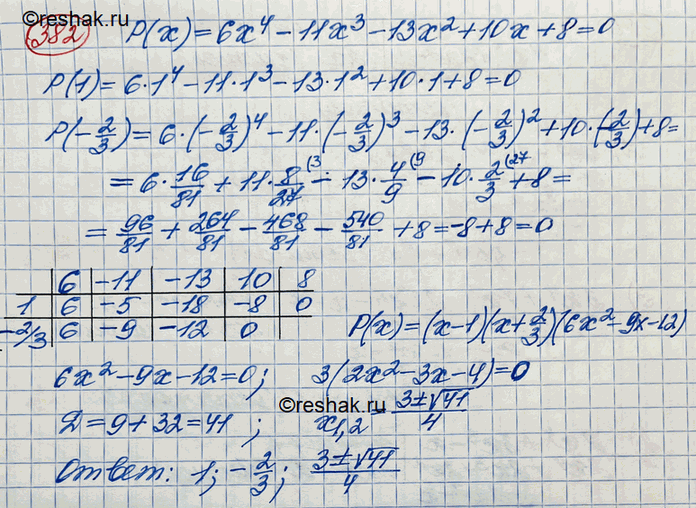 ©reshak.ru
382 P(x)=6x⁴-11x³-13x²+10x+8=0
P(1)=6·1⁴-11·1³-13·1²+10·1+8=0
P(-2/3)=6·(-2/3)⁴-11·(-2/3)³-13·(-2/3)²+10·(-2/3)+8=
=6·16/81+11·8/27⁽³-13·4/9⁽⁹-10·2/3⁽²⁷+8=
=96/81+264/81-468/81-540/81+8=-8+8=0
6 -11 -13 10 8
1 6 -5 -18 -8 0
-2/3 6 -9 -12 0
P(x)=(x-1)(x+2/3)(6x²-9x-12)
6x²-9x-12=0; 3(2x²-3x-4)=0
©reshak.ru
Д=9+32=41; x₁,₂=3±√41/4
Ответ: 1; -2/3; 3±√41/4
©reshak.ru